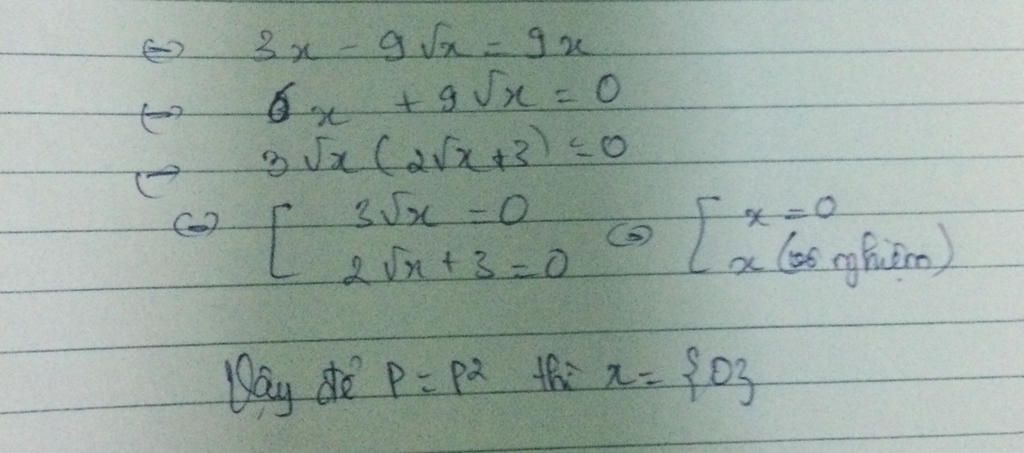 ⇔ 3x - 9√x = 9x
⇔ 6x + 9√x = 0
⇔ 3√x (2√x+3) = 0
⇔ [ 3√x = 0 ⇔ [ x = 0
2√x + 3 = 0 x (vô nghiệm)
Vậy để P = P² thì x = {0}